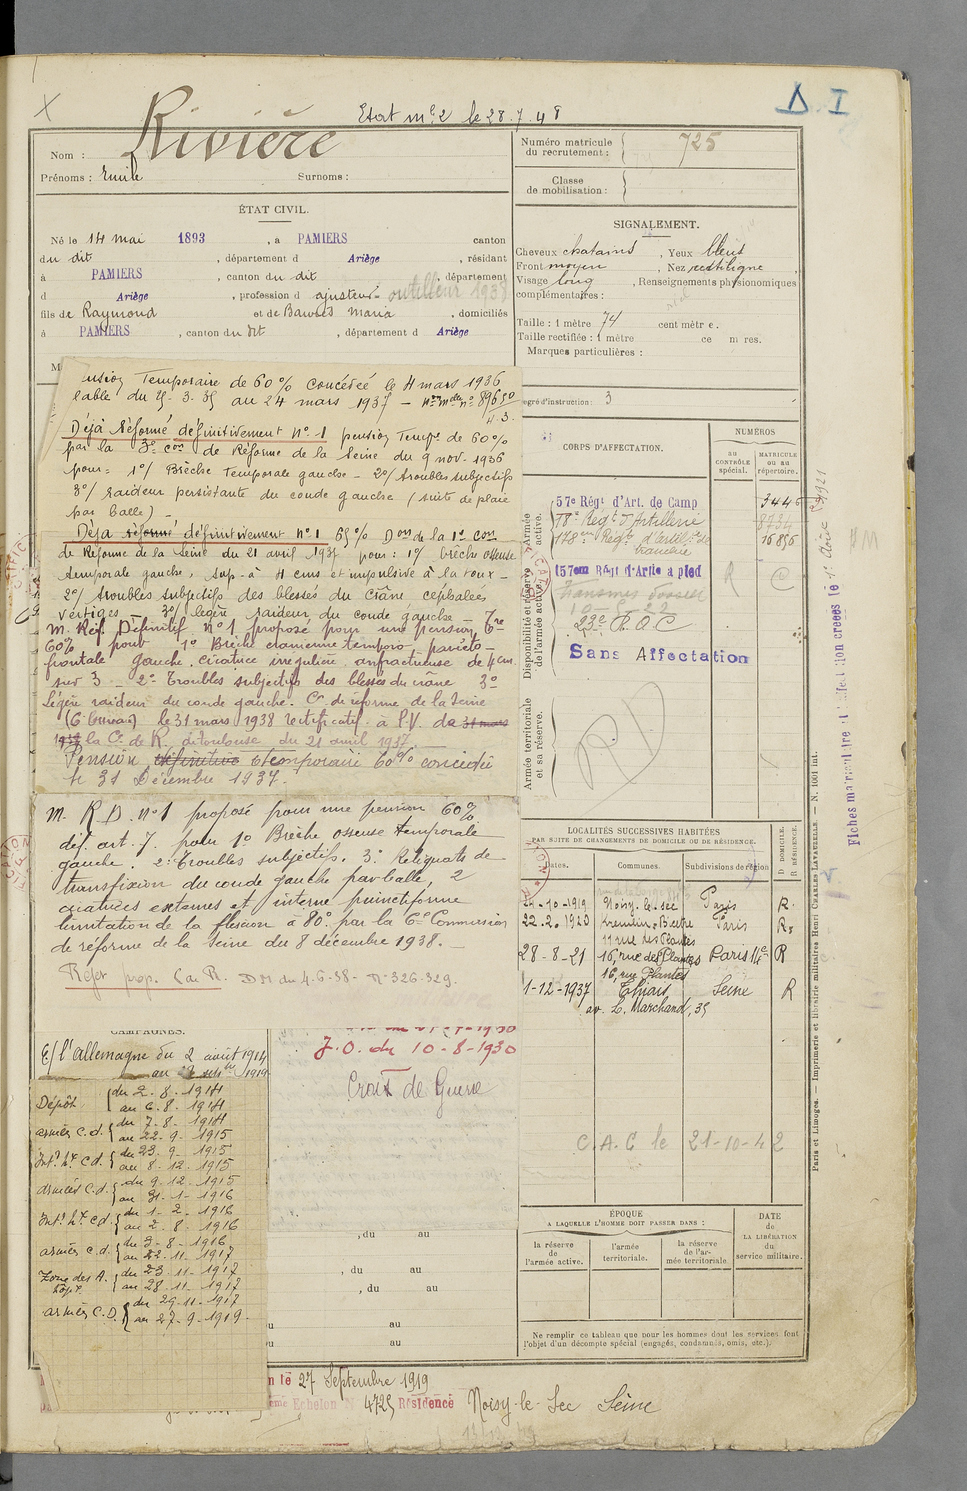 Etat mce 2 le 28.7.48
Δ. I
Nom : Rivière
Prénoms : Emile Surnoms :
Numéro matricule du recrutement : 725
Classe de mobilisation :
ÉTAT CIVIL.
Né le 14 mai 1893, à PAMIERS canton
du dit, département d Ariège, résidant
à PAMIERS, canton du dit, département
d Ariège, profession d ajusteur outilleur 1938
fils de Raymond et de Maria, domiciliés
à PAMIERS, canton du dit, département d Ariège
SIGNALEMENT.
Cheveux chatains, Yeux bleus
Front moyen, Nez rectiligne,
Visage long, Renseignements physionomiques
complémentaires :
Taille : 1 mètre 74 centimètres.
Taille rectifiée : 1 mètre
Marques particulières :
degré d'instruction : 3
ension Temporaire de 60% concédée le 4 mars 1936
au 24 mars 1937
Déjà réformé définitivement n° 1 pension Tempre de 60%
par la 3e Con de Réforme de la Seine du 9 nov. 1936
pour : 1°/ Brèche Temporale gauche - 2°/ troubles subjectifs
3°/ raideur persistante du coude gauche (suite de plaie
par balle) -
Déjà réformé définitivement n° 1 65% Don de la 1e Con
de Réforme de la Seine du 21 avril 1937 pour : 1°/ brèche osseuse
temporale gauche, sup. à 4 cms et impulsive à la toux -
2°/ troubles subjectifs des blessés du crâne céphalées
vertiges - 3°/ légère raideur du coude gauche -
m. Réf. Définitif n° 1 proposé pour une pension Tre
60% pour 1° Brèche cranienne temporo-pariéto-
frontale gauche, cicatrice irrégulière anfractueuse de 4 cm
sur 3 - 2° Troubles subjectifs des blessés du crâne 3°
légère raideur du coude gauche. Con de réforme de la Seine
le 31 mars 1938 rectificatif à P.V. de 31 mars
1938 la C. de R. de Toulouse du 21 avril 1937.
Pension définitive temporaire 60% concédée
le 31 Décembre 1937.
m. R.D. n° 1 proposé pour une pension 60%
déf. art. 7 pour 1° Brèche osseuse temporale
gauche. 2° Troubles subjectifs. 3° Reliquats de
transfixion du coude gauche par balle, 2
cicatrices externe et interne punctiforme
limitation de la flexion à 80° par la 6e Commission
de réforme de la Seine du 8 décembre 1938. -
prop. C au R. DM du 4-6-38 - N° 326.329.
CORPS D'AFFECTATION.
NUMÉROS
au CONTRÔLE spécial.
MATRICULE ou au répertoire.
Armée active.
57e Régt d'Art. de Camp 3446
78e Regt d'Artillerie
Regt d'Artil. de tranchée 16856
Disponibilité et réserve de l'armée active.
157em Régt d'Artie à pied
23e R.O.C
Sans Affectation
Armée territoriale et sa réserve.
RD
LOCALITÉS SUCCESSIVES HABITÉES
PAR SUITE DE CHANGEMENTS DE DOMICILE OU DE RÉSIDENCE.
Dates. Communes. Subdivisions de région
D DOMICILE. R RÉSIDENCE.
-10-1919 Noisy-le-Sec Paris R.
22.2.1920 Kremlin-Bicêtre Paris R.
11 rue des Plantes
28-8-21 16, rue des Plantes Paris 14e R
16, rue Plantes
1-12-1937 Thiais Seine R
av. L. Marchand, 35
C.A.C le 21-10-42
ÉPOQUE
A LAQUELLE L'HOMME DOIT PASSER DANS :
la réserve de l'armée active.
l'armée territoriale.
la réserve de l'armée territoriale.
DATE de LA LIBÉRATION du service militaire.
Ne remplir ce tableau que pour les hommes dont les services font
l'objet d'un décompte spécial (engagés, condamnés, omis, etc.).
CAMPAGNES.
C/ l'Allemagne du 2 août 1914
au 27 septbre 1919
Dépôt du 2.8.1914
au 6.8.1914
armées C.d. du 7-8-1914
au 22-9-1915
Intr hx C.d. du 23-9-1915
au 8-12-1915
armées C.d. du 9-12-1915
au 31-1-1916
Intr hx C.d. du 1-2-1916
au 2-8-1916
armées C.d. du 3-8-1916
au 22-11-1917
Zone des A. hôpx. du 23-11-1917
au 28-11-1917
armées C.D. du 29-11-1917
au 27-9-1919.
J.O. du 10-8-1930
Croix de Guerre
, du au
, du au
, du au
au
au
le 27 Septembre 1919
Echelon N° 4725 Résidence Noisy-le-Sec Seine
Paris et Limoges. — Imprimerie et librairie militaires Henri CHARLES-LAVAUZELLE. — N. 1001 int.
Fiches matriculaire et d'affectation créées le 1er Août 1921